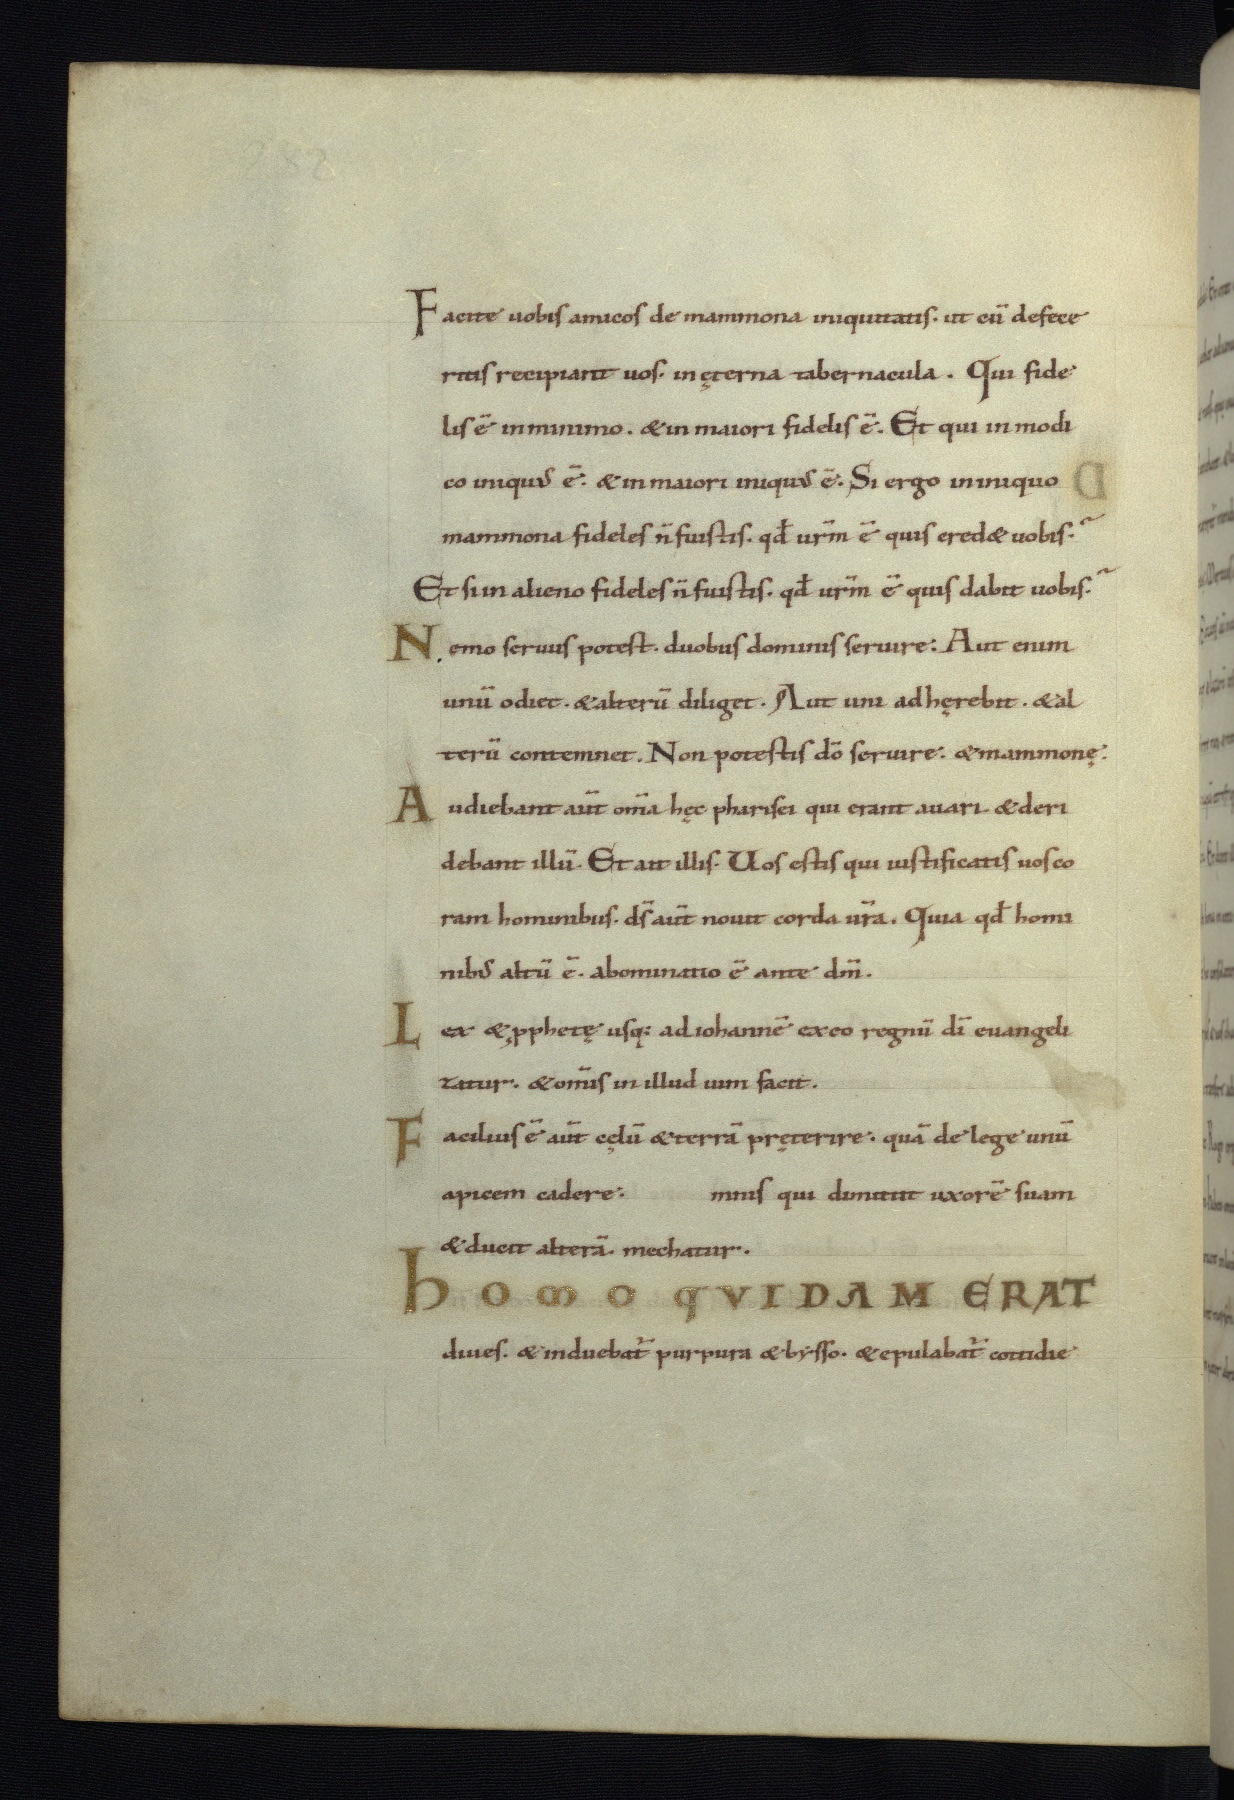 Facite uobis amicos de mammona iniquitatis. ut cū defece
ritis recipiant uos. in ęterna tabernacula. Qui fide
lis ē in minimo. & in maiori fidelis ē. Et qui in modi
co iniquus ē. & in maiori iniquus ē. Si ergo in iniquo
mammona fideles n̄ fuistis. qđ ur̄m ē quis cred& uobis.
Et si in alieno fideles n̄ fuistis. qđ ur̄m ē quis dabit uobis.
Nemo seruus potest. duobus dominis seruire: Aut enim
unū odiet. & alterū diliget. Aut uni adhęrebit. & al
terū contemnet. Non potestis dō seruire. & mammonę:
Audiebant aūt om̄a hęc pharisei qui erant auari. & deri
debant illū. Et ait illis. Uos estis qui iustificatis uos co
ram hominibus. ds̄ aūt nouit corda ur̄a. Quia qđ homi
nibus altū ē. abominatio ē ante dm̄.
Lex & ꝓphetę usq: ad iohannē ex eo regnū dī euangeli
zatur. & om̄is in illud uim facit.
Facilius ē aūt cęlū & terrā pręterire. quā de lege unū
apicem cadere. mnis qui dimittit uxorē suam
& ducit alterā. mechatur.
hOMO QVIDAM ERAT
diues. & induebat̄ purpura & bysso. & epulabat̄ cottidie